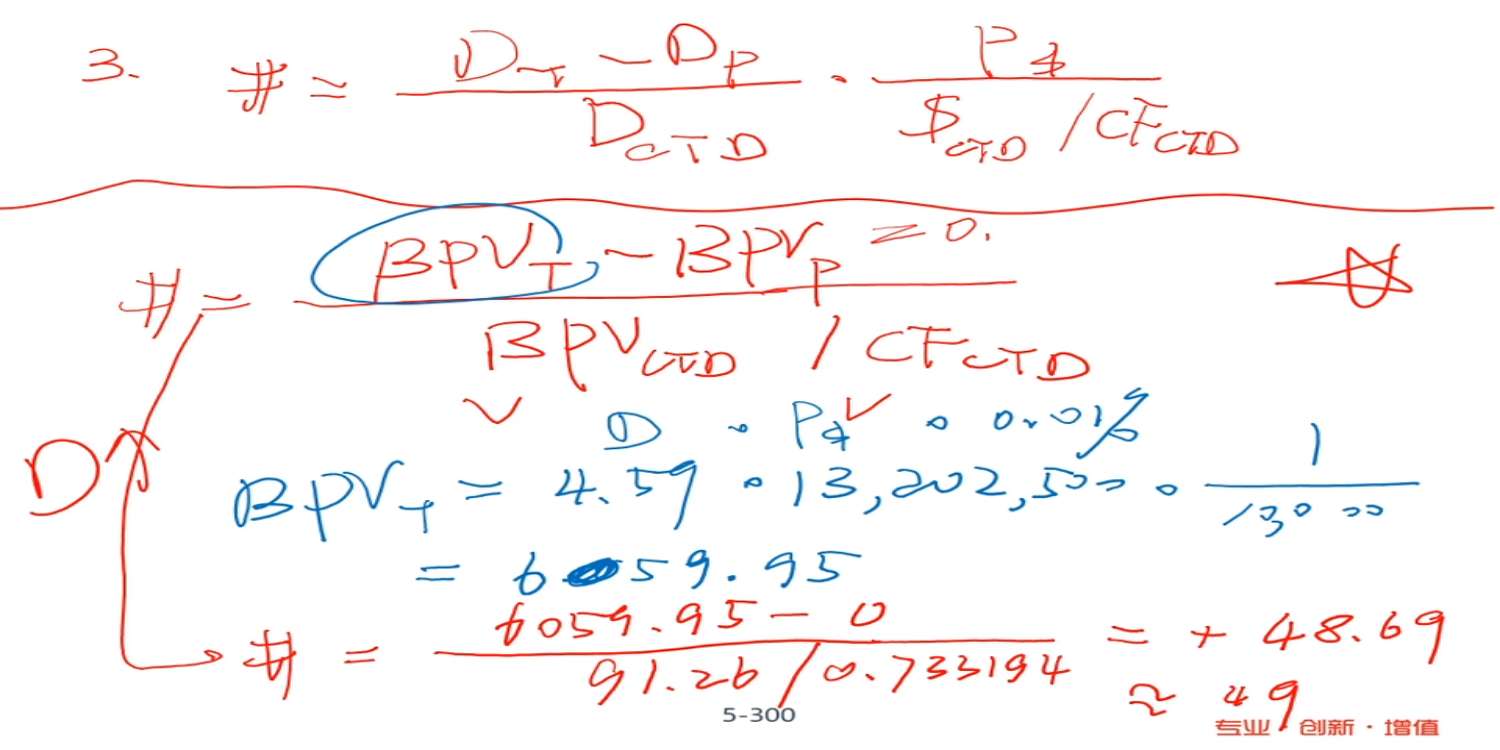 3. # = (D_T - D_P) / D_CTD · P_$ / ($_CTD / CF_CTD)
# = (BPV_T - BPV_P = 0.) / (BPV_CTD / CF_CTD)
D · P_$ · 0.01%
D↑ BPV_T = 4.59 · 13,202,500 · 1 / 10000
= 6059.95
# = (6059.95 - 0) / (91.26 / 0.733194) = + 48.69
≈ 49
5-300
专业·创新·增值